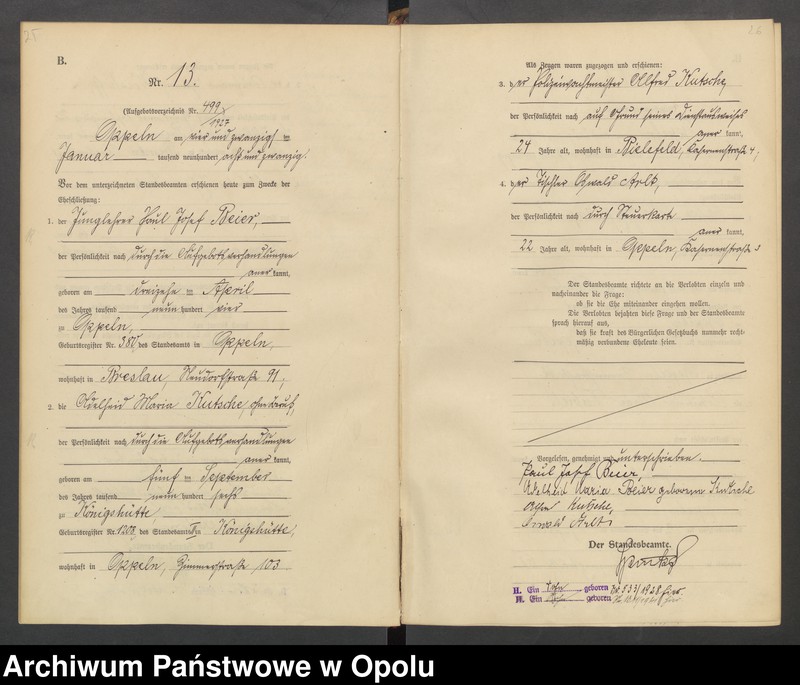 25
B.
Nr. 13.
(Aufgebotsverzeichnis Nr. 499
1927
Oppeln am vier und zwanzigsten
Januar tausend neunhundert acht und zwanzig.
Vor dem unterzeichneten Standesbeamten erschienen heute zum Zwecke der
Eheschließung:
1. der Junglehrer Paul Josef Beier,
der Persönlichkeit nach durch die Aufgebotsverhandlungen
anerkannt,
geboren am dreizehnten April
des Jahres tausend neunhundert vier
zu Oppeln,
Geburtsregister Nr. 380 des Standesamts in Oppeln,
wohnhaft in Breslau, Neudorfstraße 91,
2. die Adelheid Maria Kutsche, ohne Beruf,
der Persönlichkeit nach durch die Aufgebotsverhandlungen
anerkannt,
geboren am fünften September
des Jahres tausend neunhundert sechs
zu Königshütte
Geburtsregister Nr. 1208 des Standesamts in Königshütte,
wohnhaft in Oppeln, Zimmerstraße 103
26
Als Zeugen waren zugezogen und erschienen:
3. der Polizeiwachtmeister Alfred Kutsche,
der Persönlichkeit nach auf Grund seines Dienstausweises
anerkannt,
24 Jahre alt, wohnhaft in Bielefeld, Kasernenstraße 4,
4. der Tischler Oswald Arlt,
der Persönlichkeit nach durch Steuerkarte
anerkannt,
22 Jahre alt, wohnhaft in Oppeln, Kasernenstraße 3
Der Standesbeamte richtete an die Verlobten einzeln und
nacheinander die Frage:
ob sie die Ehe miteinander eingehen wollen.
Die Verlobten bejahten diese Frage und der Standesbeamte
sprach hierauf aus,
daß sie kraft des Bürgerlichen Gesetzbuchs nunmehr recht-
mäßig verbundene Eheleute seien.
Vorgelesen, genehmigt und unterschrieben.
Paul Josef Beier
Adelheid Maria Beier geborene Kutsche
Alfred Kutsche,
Oswald Arlt
Der Standesbeamte.
II. Ein Sohn geboren Nr. 533/1928 hier
II. Ein geboren
Archiwum Państwowe w Opolu